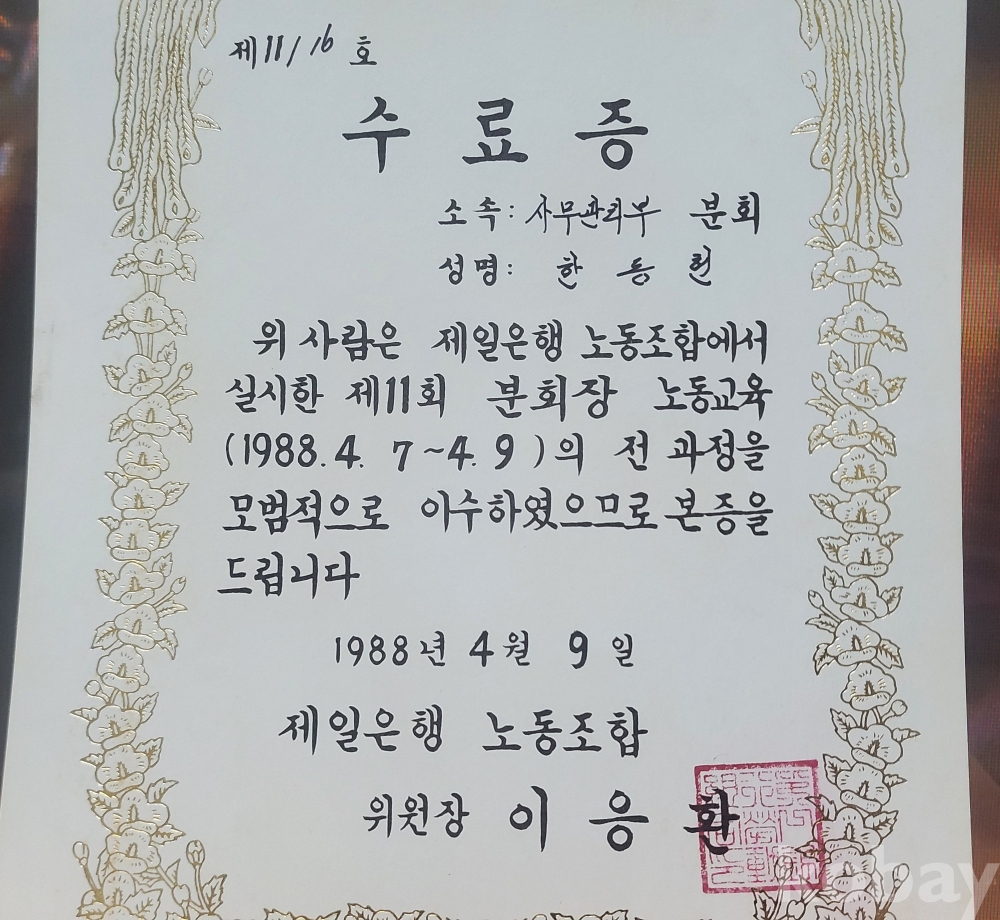 제11/16 호
수료증
소속: 사무관리부 분회
성명: 한 동 헌
위 사람은 제일은행 노동조합에서
실시한 제11회 분회장 노동교육
(1988. 4. 7 ~ 4. 9)의 전 과정을
모범적으로 이수하였으므로 본증을
드립니다
1988년 4월 9일
제일은행 노동조합
위원장 이응환